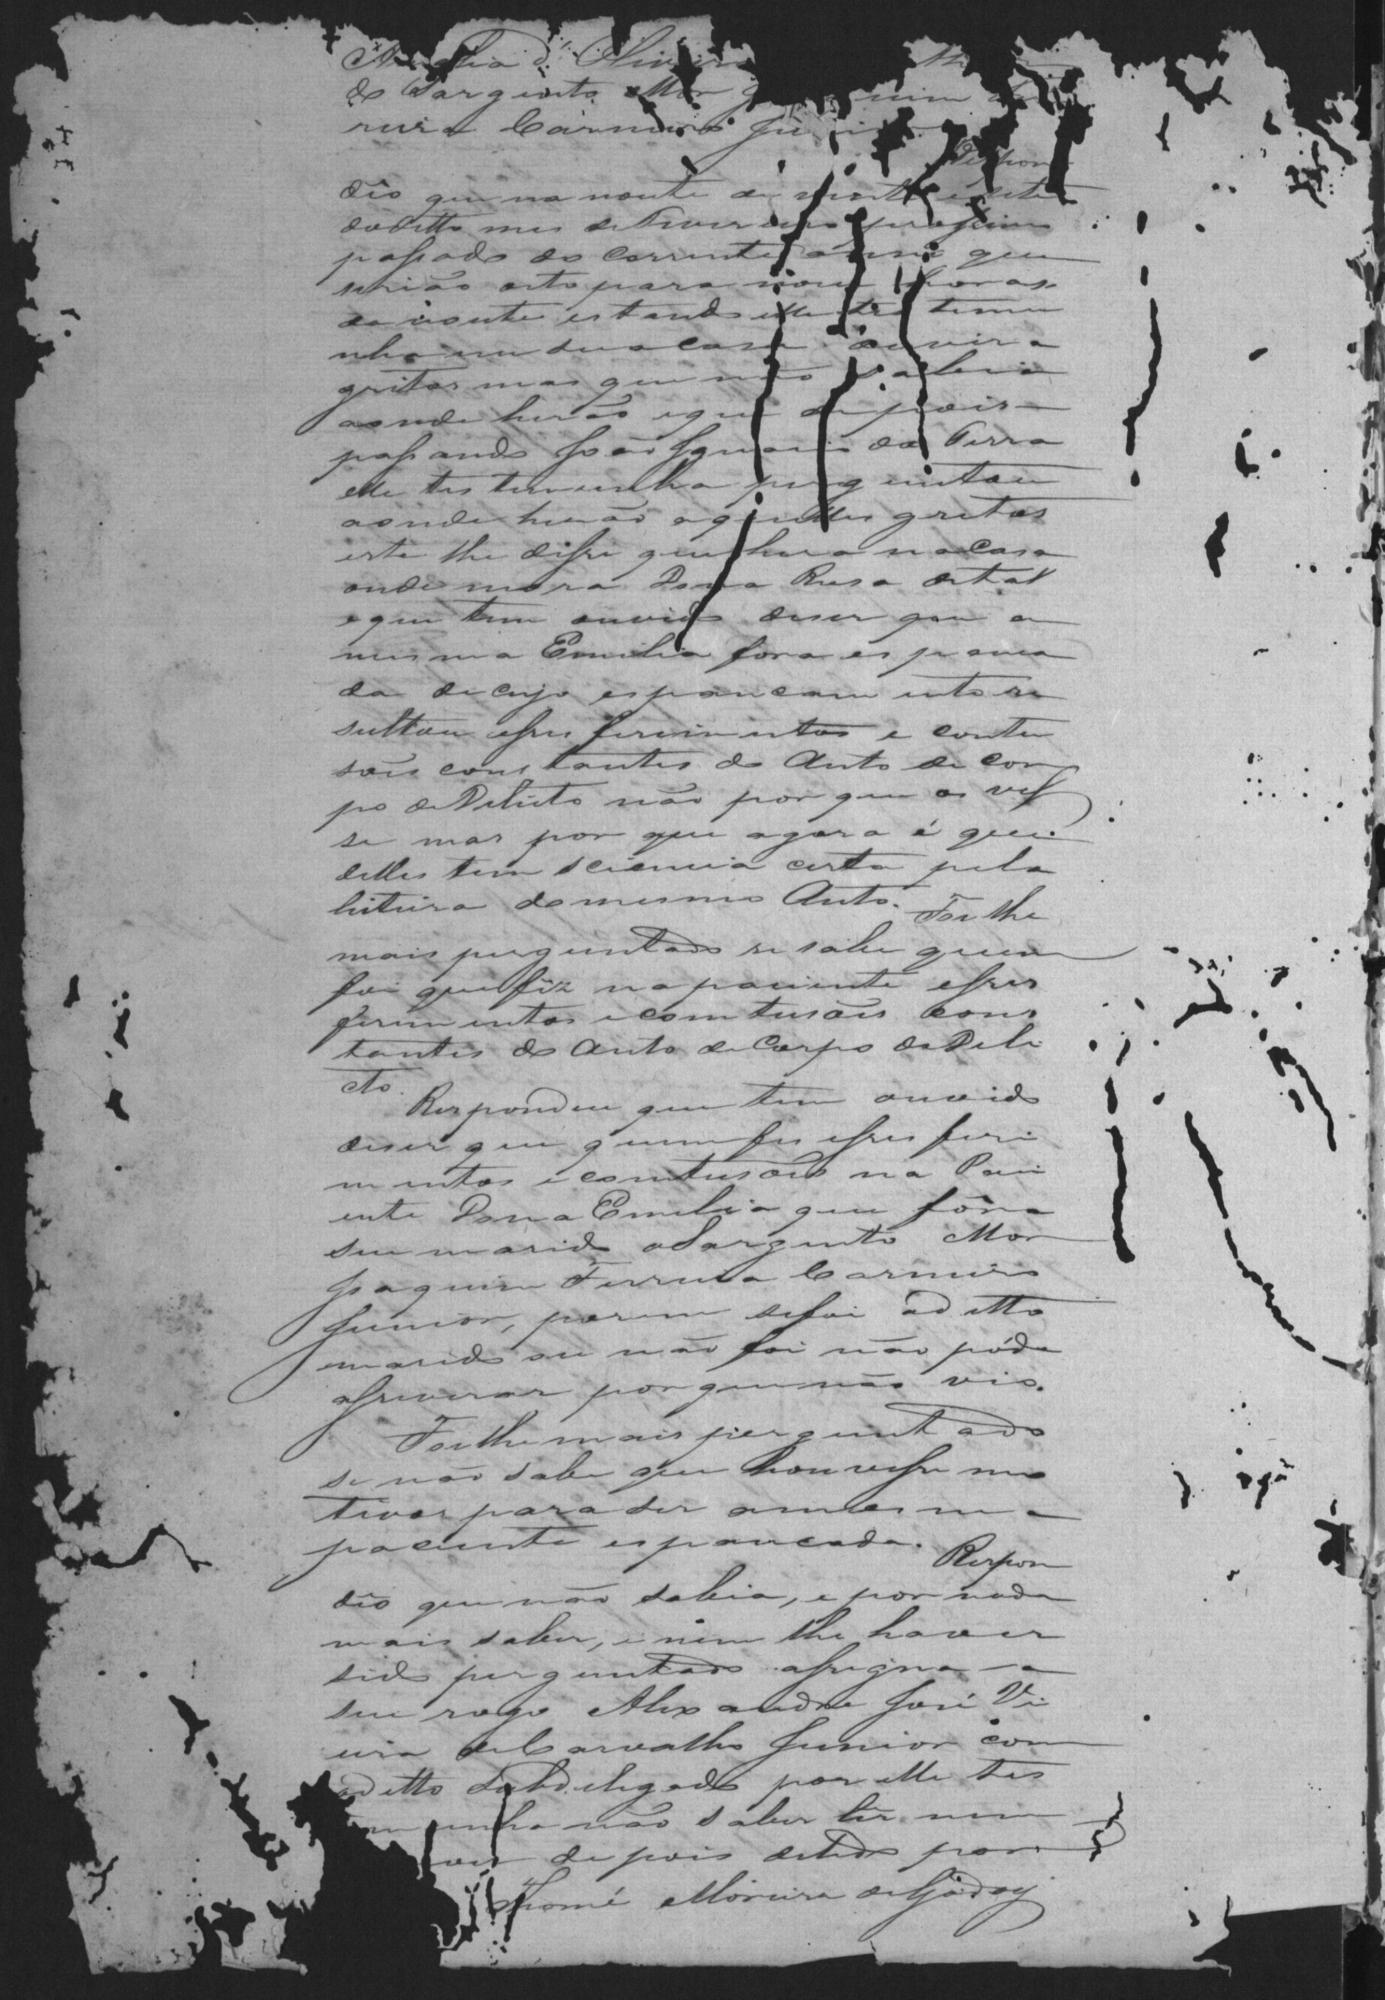 de Oliveira
do Sargento Mor
reira Carneiro Junior
Respon
dêo que na noute de vinte e sete
do ditto mes de Fevereiro proximo
passado do corrente anno que
serião oito para nove horas
da noute estando elle testemu
nha em sua casa ouvira
gritos mas que não sabia
aonde herão e que depois
passando João Ignacio da Terra
elle testemunha perguntou
aonde herão aquelles gritos
este lhe disse que hera na casa
onde mora Dona Rosa de tal
e que tem ouvido diser que a
mesma Emilia fora espanca
da de cujo espancamento re
sultou esses ferimentos e contu
sões constantes do Auto de Cor
po de Delicto não por que os vis
se mas por que agora é que
delles tem sciencia certa pela
leitura do mesmo Auto. Foi lhe
mais perguntado se sabe quem
foi que fez na paciente esses
ferimentos e contusões cons
tantes do Auto de Corpo de Deli
cto.
Respondeu que tem ouvido
diser que quem fes esses feri
mentos e contusões na Paci
ente Dona Emilia que fôra
seu marido o Sargento Mor
Joaquim Ferreira Carneiro
Junior, porem se foi o ditto
marido ou não foi não póde
asseverar por que não vio.
Foi lhe mais perguntado
se não sabe que houvesse mo
tivos para ser a mesma
paciente espancada. Respon
dêo que não sabia, e por nada
mais saber, e nem lhe haver
sido perguntado assigna a
seu rogo Alexandre José Vi
eira de Carvalho Junior com
o ditto Subdelegado por elle tes
temunha não saber ler nem
depois de lido por
Thomé Moreira de Godoy